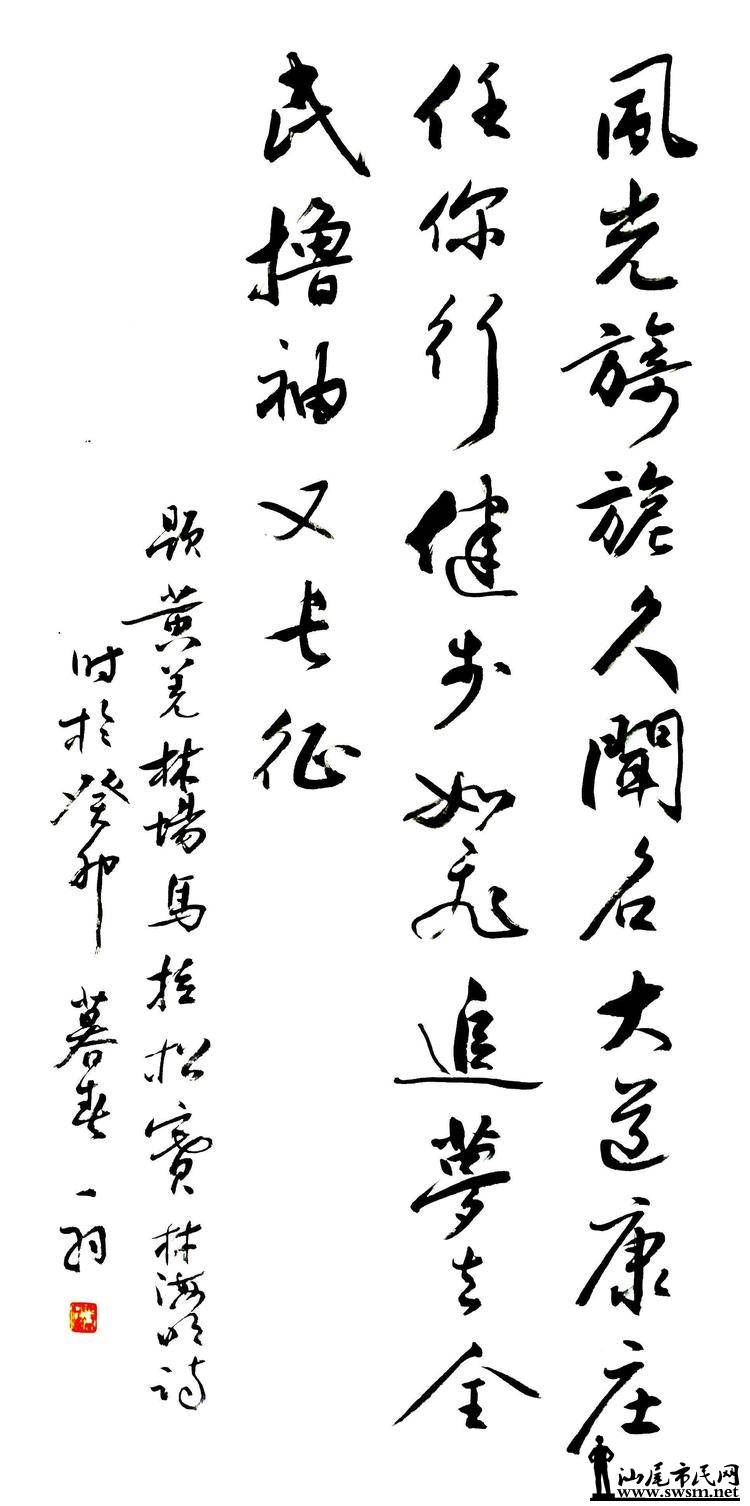 風光旖旎久聞名大道康庄
任你行健步如飛追夢去全
民撸袖又长征
题黄羌林場馬拉松賽林海明詩
时於癸卯暮春一羽
汕尾市民网
www.swsm.net